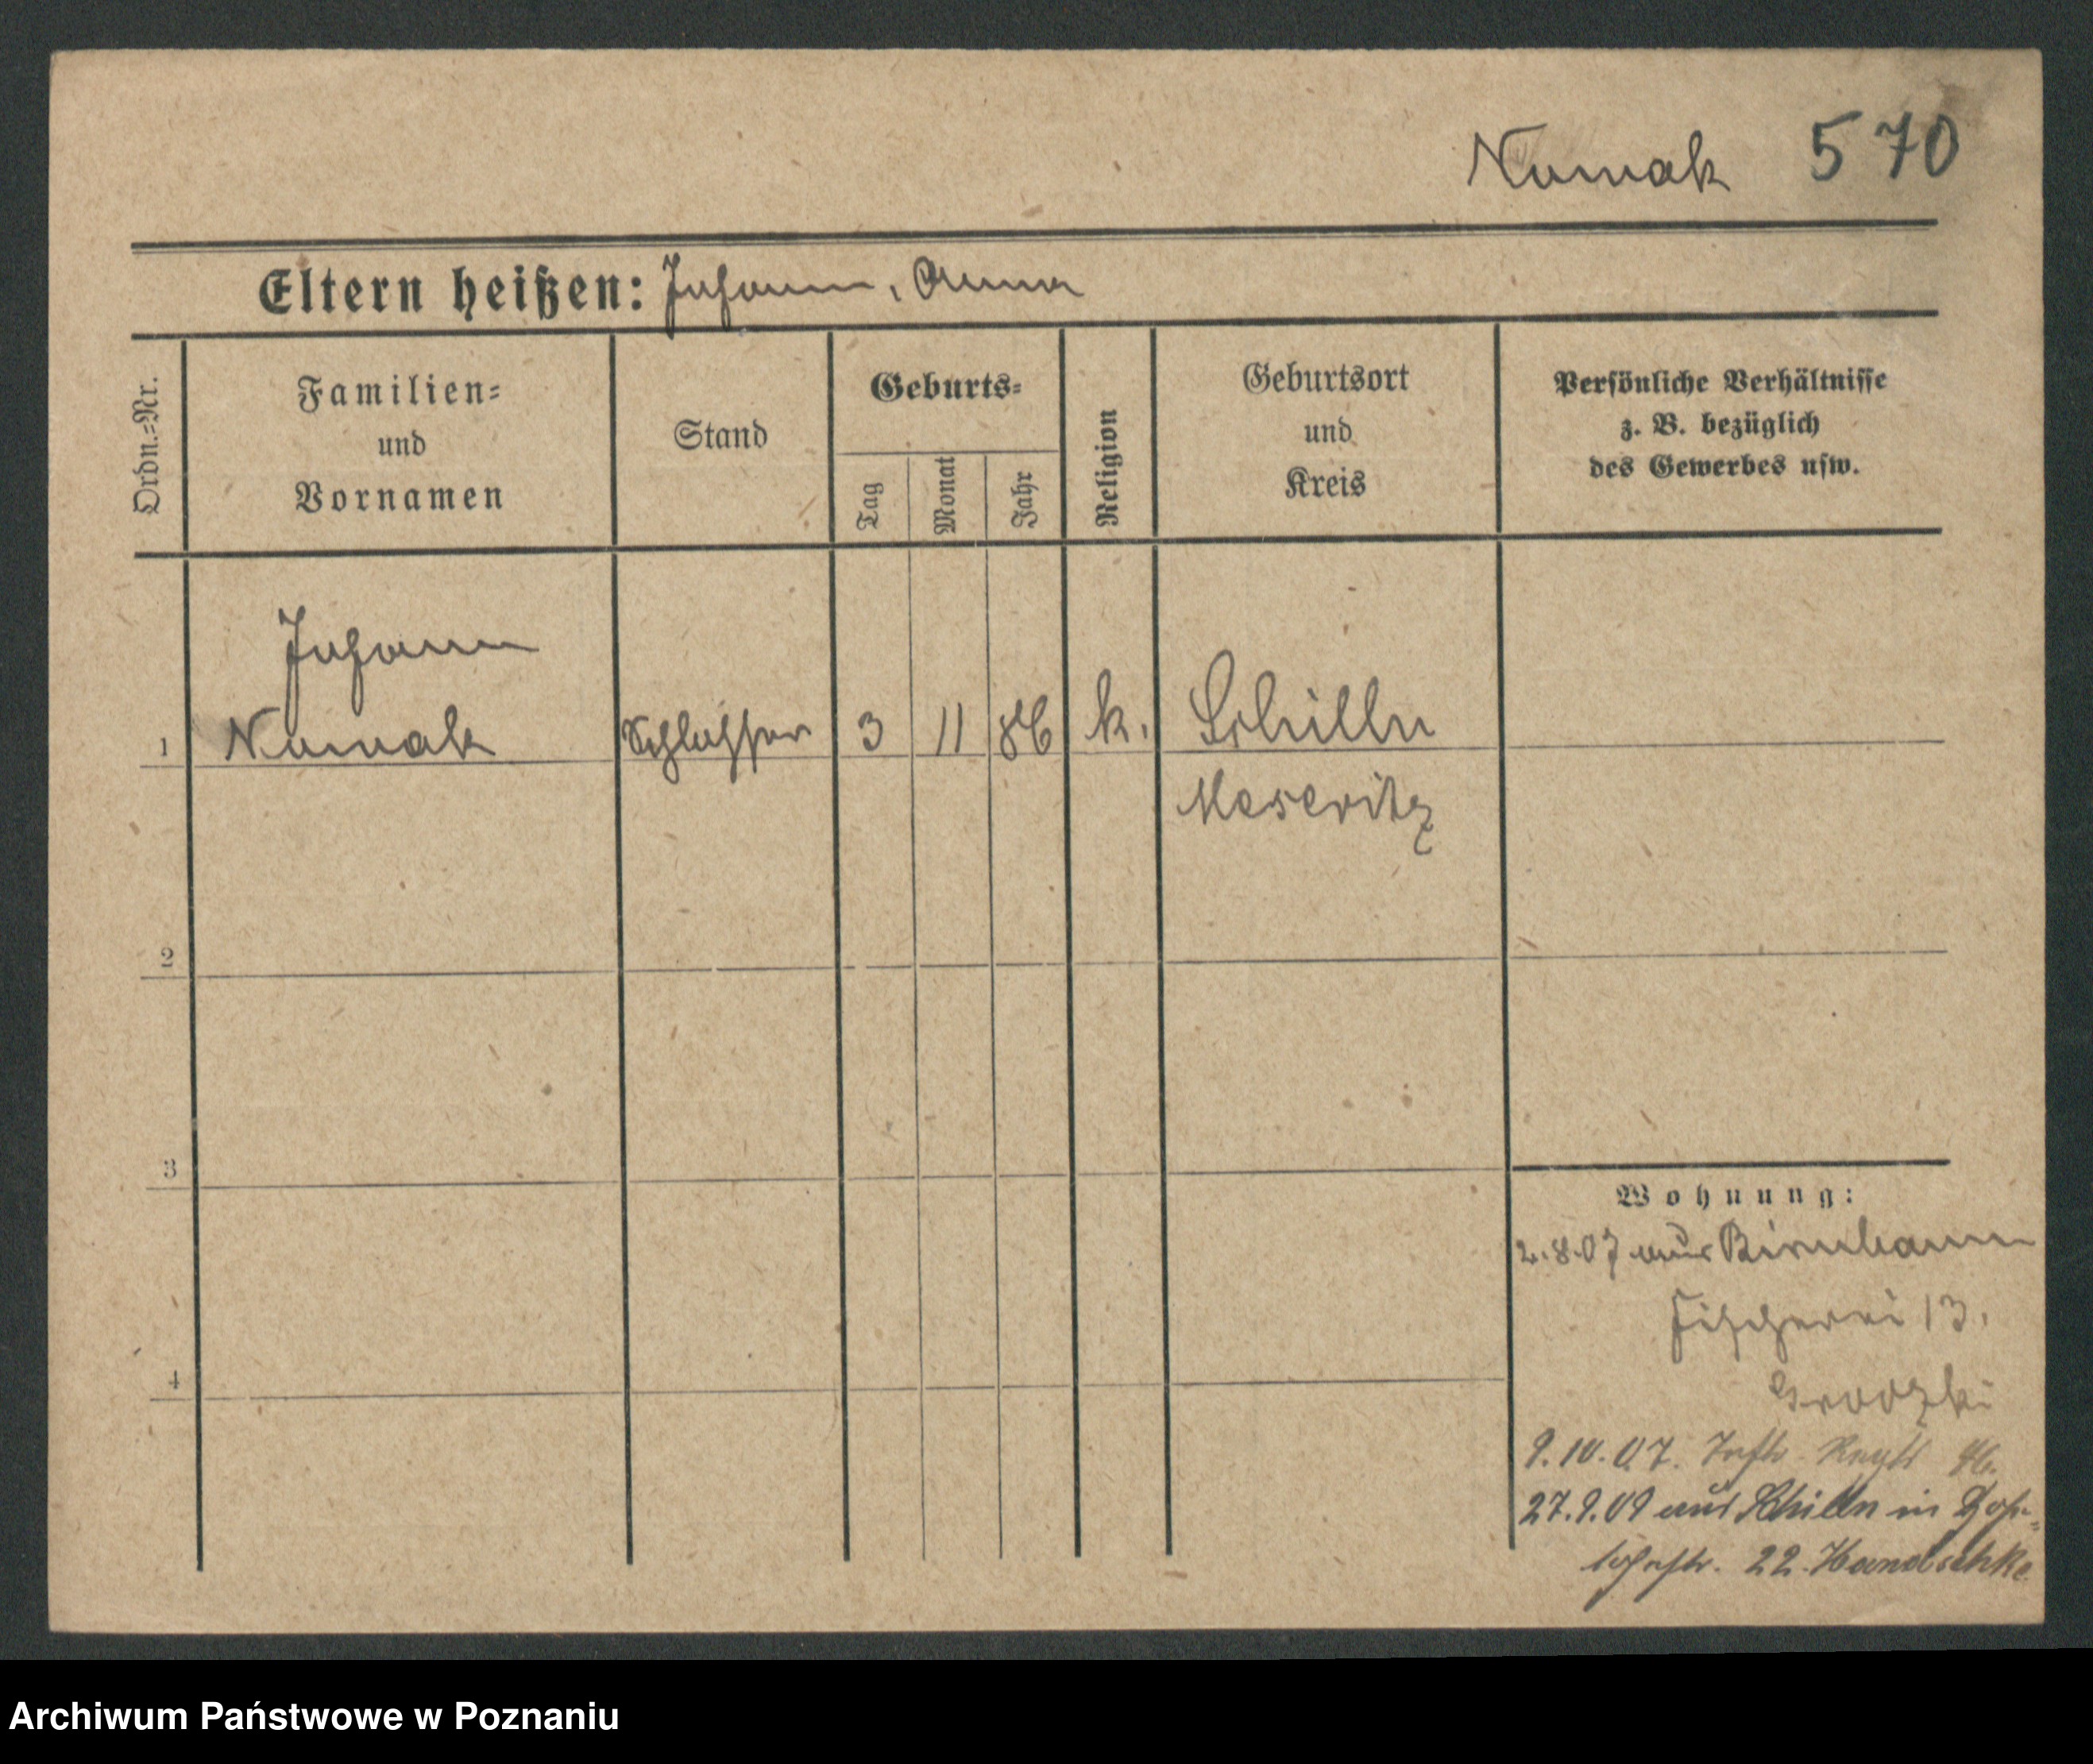 Nowak 570
Eltern heißen: Johann, Anna
Ordn.=Nr.
Familien=
und
Vornamen
Stand
Geburts=
Tag
Monat
Jahr
Religion
Geburtsort
und
Kreis
Persönliche Verhältnisse
z. B. bezüglich
des Gewerbes usw.
Johann
1 Nowak Schlosser 3 11 86 k. Schilln
Meseritz
2
3
4
Wohnung:
2.8.07 aus Birnbaum
Fischerei 13.
Grodzki
9.10.07.
27.9.09 aus Schilln in
22. Handschke
Archiwum Państwowe w Poznaniu